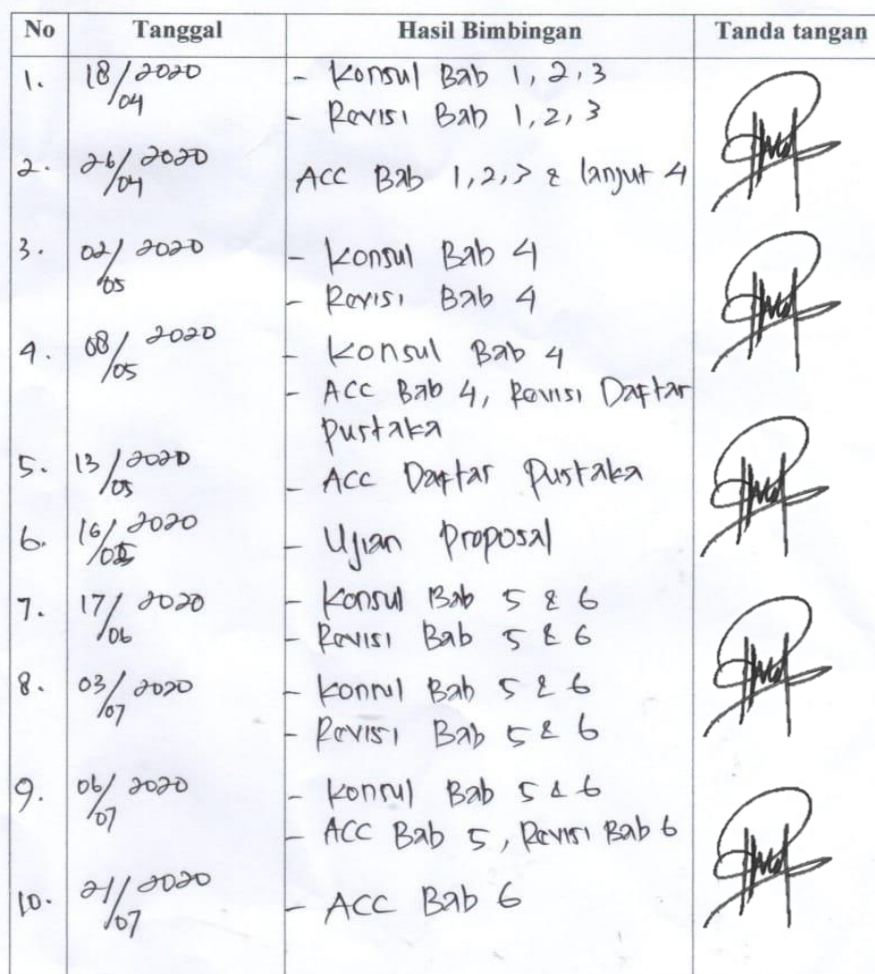 No Tanggal Hasil Bimbingan Tanda tangan
1. 18/04 2020 - Konsul Bab 1, 2, 3
- Revisi Bab 1, 2, 3
2. 26/04 2020 ACC Bab 1, 2, 3 & lanjut 4
3. 02/05 2020 - Konsul Bab 4
- Revisi Bab 4
4. 08/05 2020 - Konsul Bab 4
- ACC Bab 4, Revisi Daftar
Pustaka
5. 13/05 2020 - ACC Daftar Pustaka
6. 16/05 2020 - Ujian Proposal
7. 17/06 2020 - Konsul Bab 5 & 6
- Revisi Bab 5 & 6
8. 03/07 2020 - Konsul Bab 5 & 6
- Revisi Bab 5 & 6
9. 06/07 2020 - Konsul Bab 5 & 6
- ACC Bab 5, Revisi Bab 6
10. 21/07 2020 - ACC Bab 6